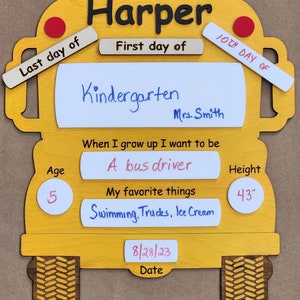 Harper
Last day of
First day of
10TH DAY OF
Kindergarten
Mrs. Smith
When I grow up I want to be
Age
A bus driver
Height
5
My favorite things
43"
Swimming, Trucks, Ice Cream
8/28/23
Date